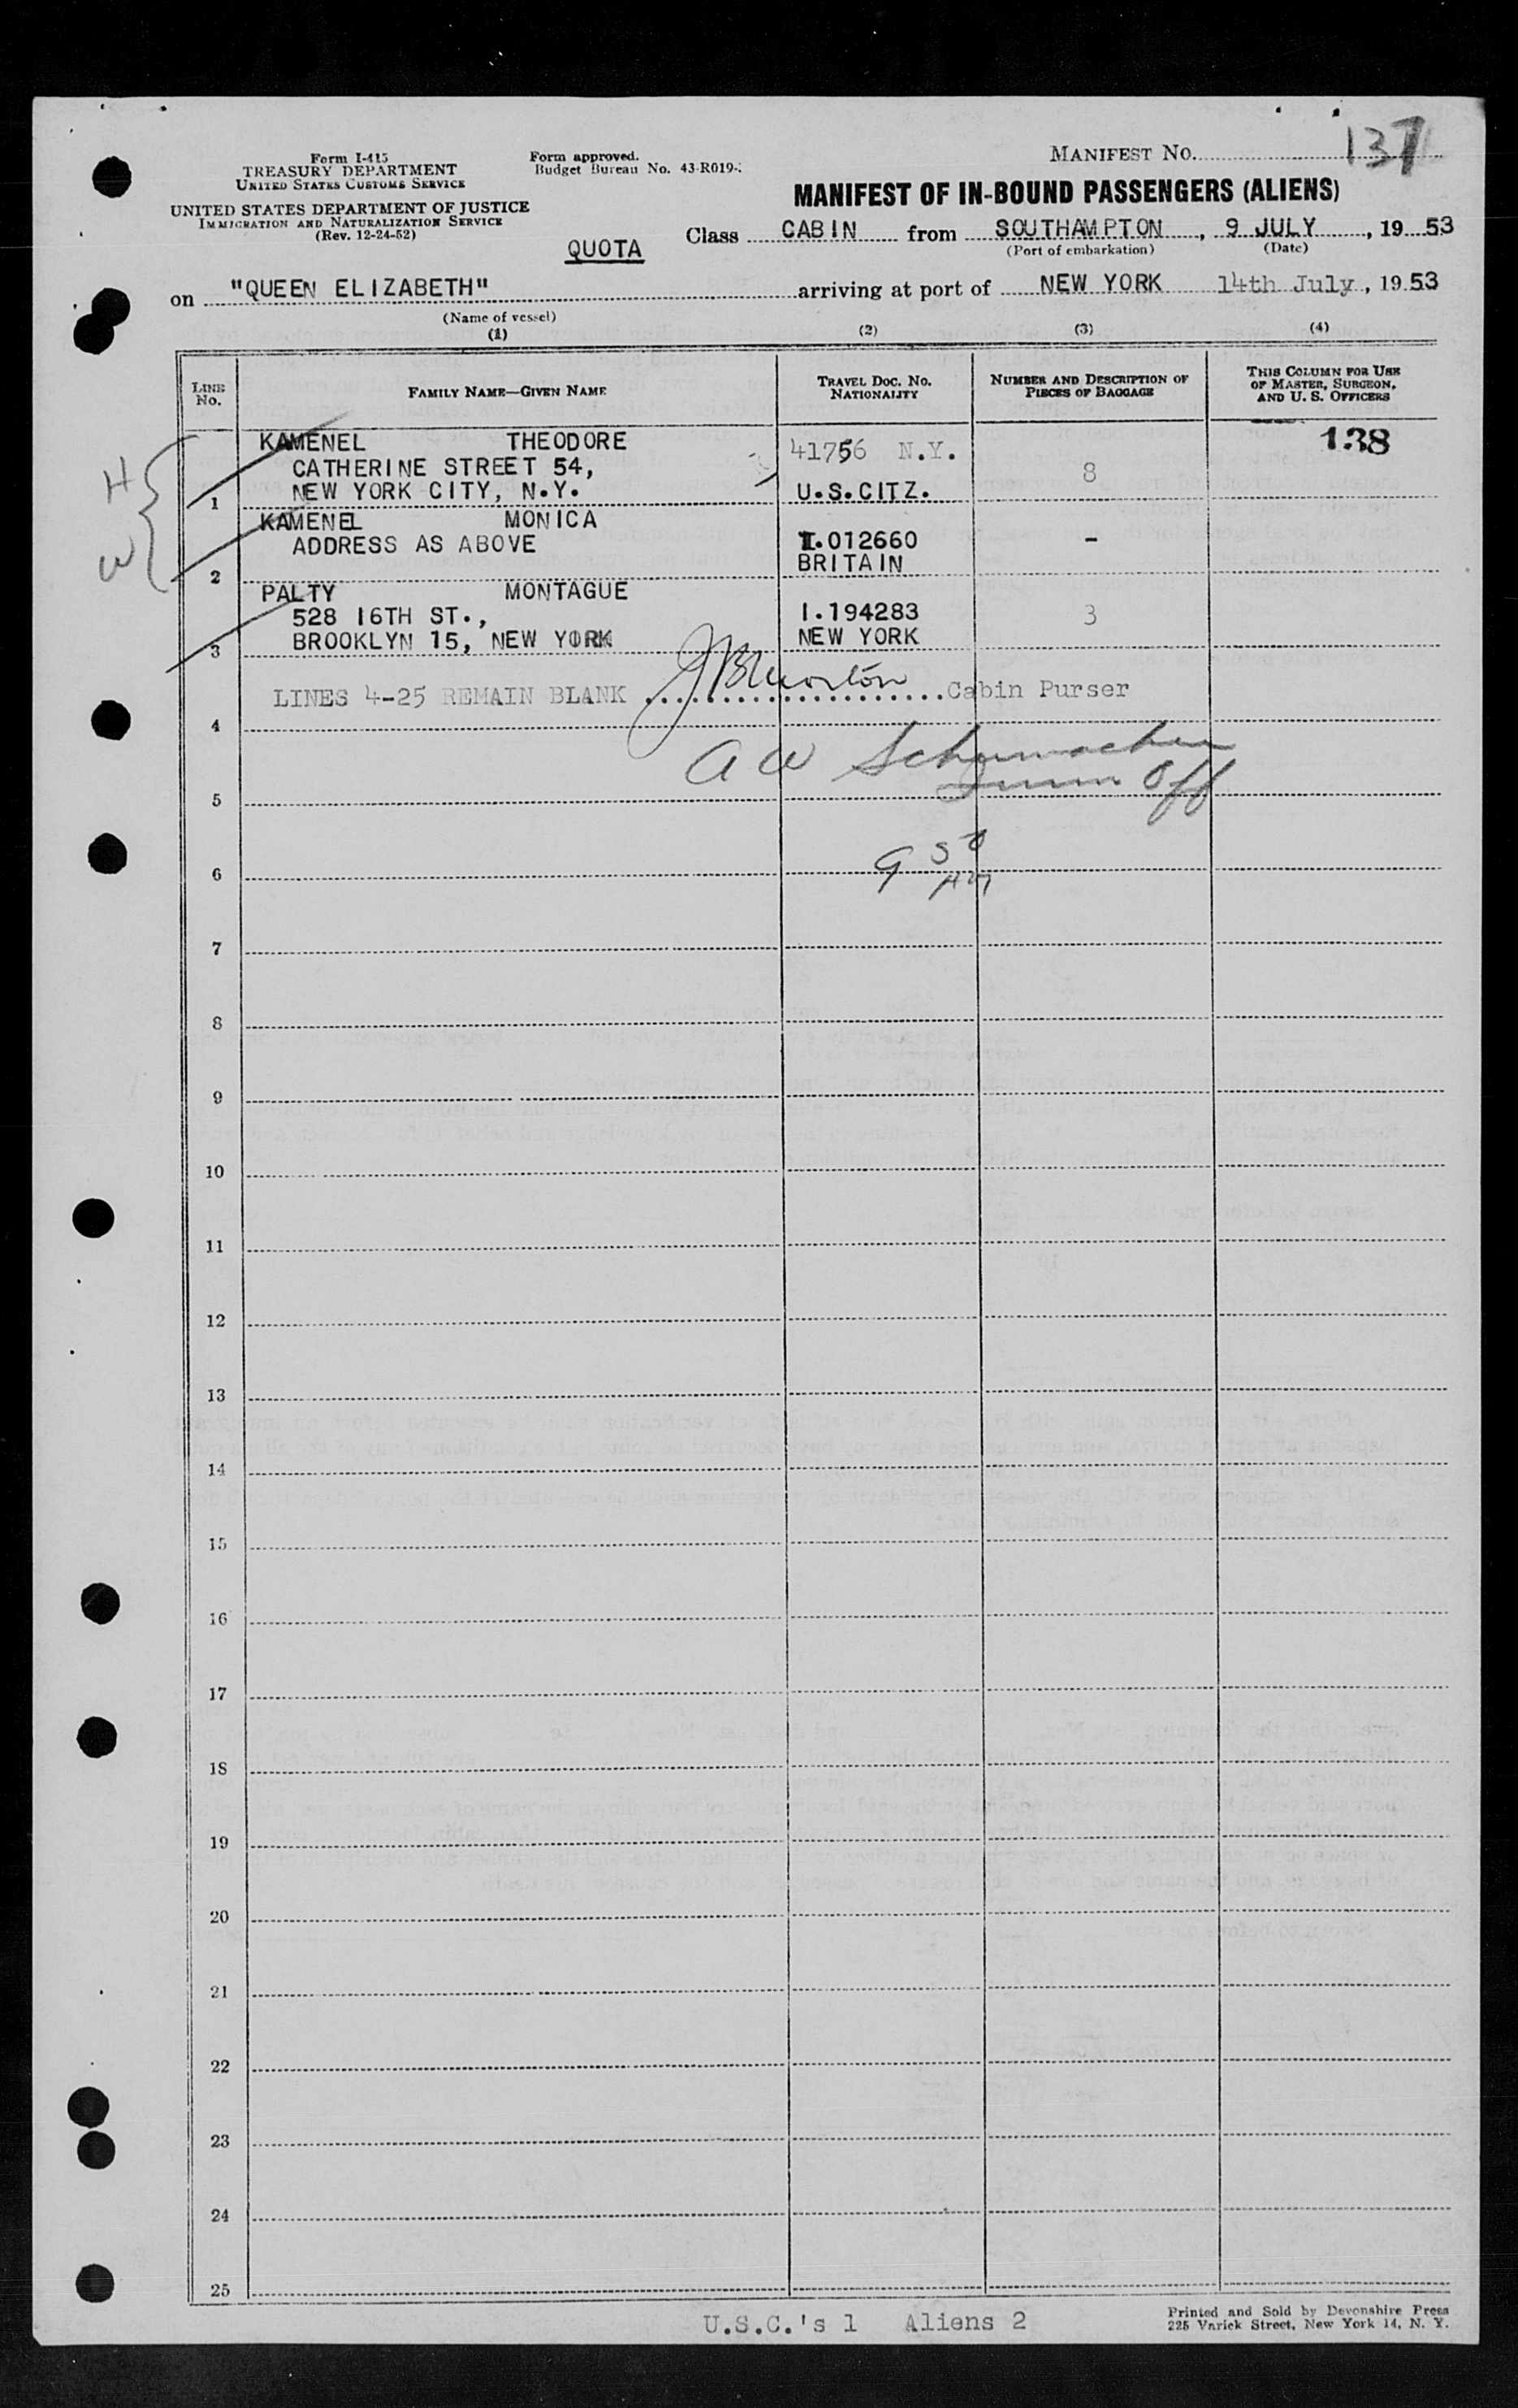 MANIFEST NO. 137
Form I-415
TREASURY DEPARTMENT
UNITED STATES CUSTOMS SERVICE
UNITED STATES DEPARTMENT OF JUSTICE
IMMIGRATION AND NATURALIZATION SERVICE
(Rev. 12-24-52)
Form approved.
Budget Bureau No. 43-R019-
MANIFEST OF IN-BOUND PASSENGERS (ALIENS)
QUOTA Class CABIN from SOUTHAMPTON, 9 JULY, 1953
(Port of embarkation) (Date)
on "QUEEN ELIZABETH" arriving at port of NEW YORK 14th July, 1953
(Name of vessel)
(1) (2) (3) (4)
LINE NO. FAMILY NAME—GIVEN NAME TRAVEL DOC. NO. NATIONALITY NUMBER AND DESCRIPTION OF PIECES OF BAGGAGE THIS COLUMN FOR USE OF MASTER, SURGEON, AND U. S. OFFICERS
138
H
KAMENEL THEODORE 41756 N.Y.
CATHERINE STREET 54, 8
1 NEW YORK CITY, N.Y. U.S.CITZ.
W
KAMENEL MONICA
ADDRESS AS ABOVE I.012660 -
2 BRITAIN
PALTY MONTAGUE
528 16TH ST., I.194283 3
3 BROOKLYN 15, NEW YORK NEW YORK
LINES 4-25 REMAIN BLANK Cabin Purser
4
A W Schumacher
Imm Off
5
9 50 AM
6
7
8
9
10
11
12
13
14
15
16
17
18
19
20
21
22
23
24
25
U.S.C.'s 1 Aliens 2
Printed and Sold by Devonshire Press
225 Varick Street, New York 14, N. Y.